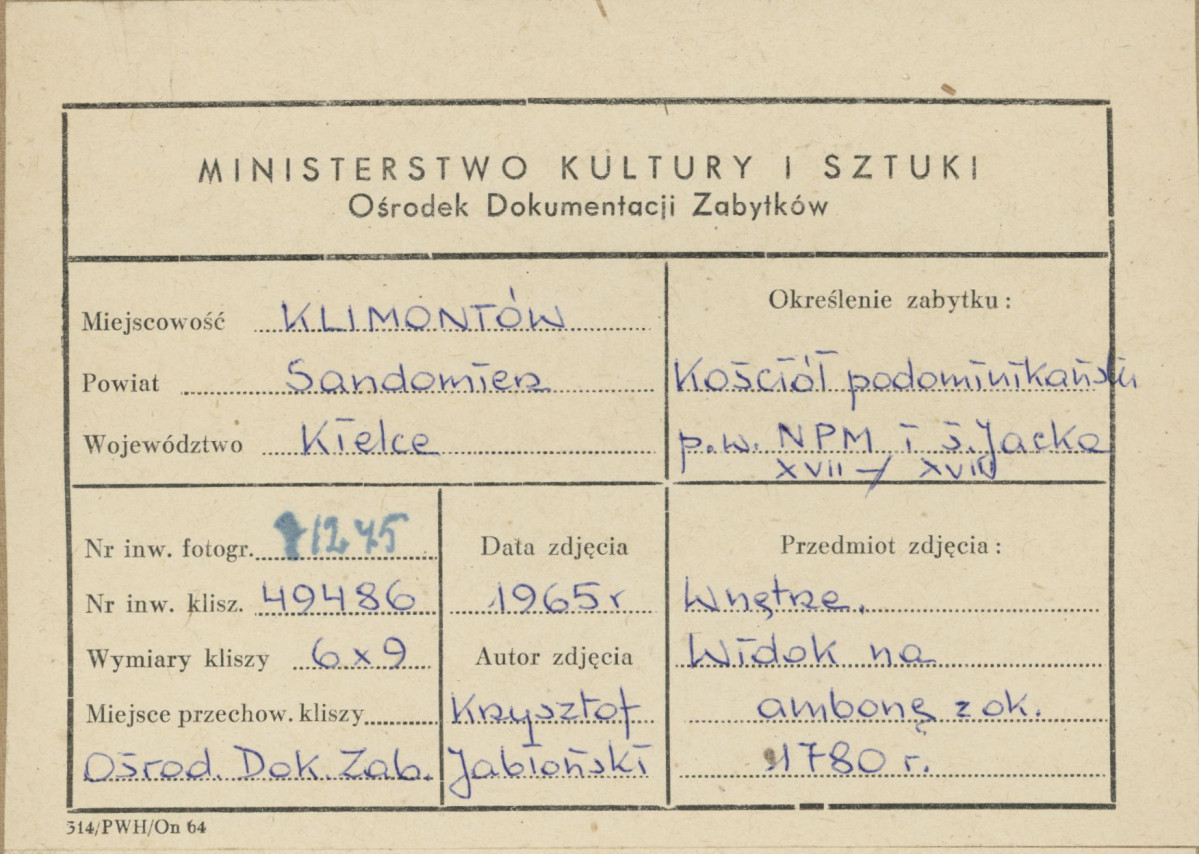 MINISTERSTWO KULTURY I SZTUKI
Ośrodek Dokumentacji Zabytków
Miejscowość KLIMONTÓW
Powiat Sandomierz
Województwo Kielce
Określenie zabytku:
Kościół podominikański
p.w. NPM i ś. Jacka
XVII-/XVIII
Nr inw. fotogr. 71245
Nr inw. klisz. 49486
Wymiary kliszy 6x9
Miejsce przechow. kliszy
Ośrod. Dok. Zab.
Data zdjęcia
1965 r
Autor zdjęcia
Krzysztof
Jabłoński
Przedmiot zdjęcia:
Wnętrze.
Widok na
ambonę z ok.
1780 r.
314/PWH/On 64